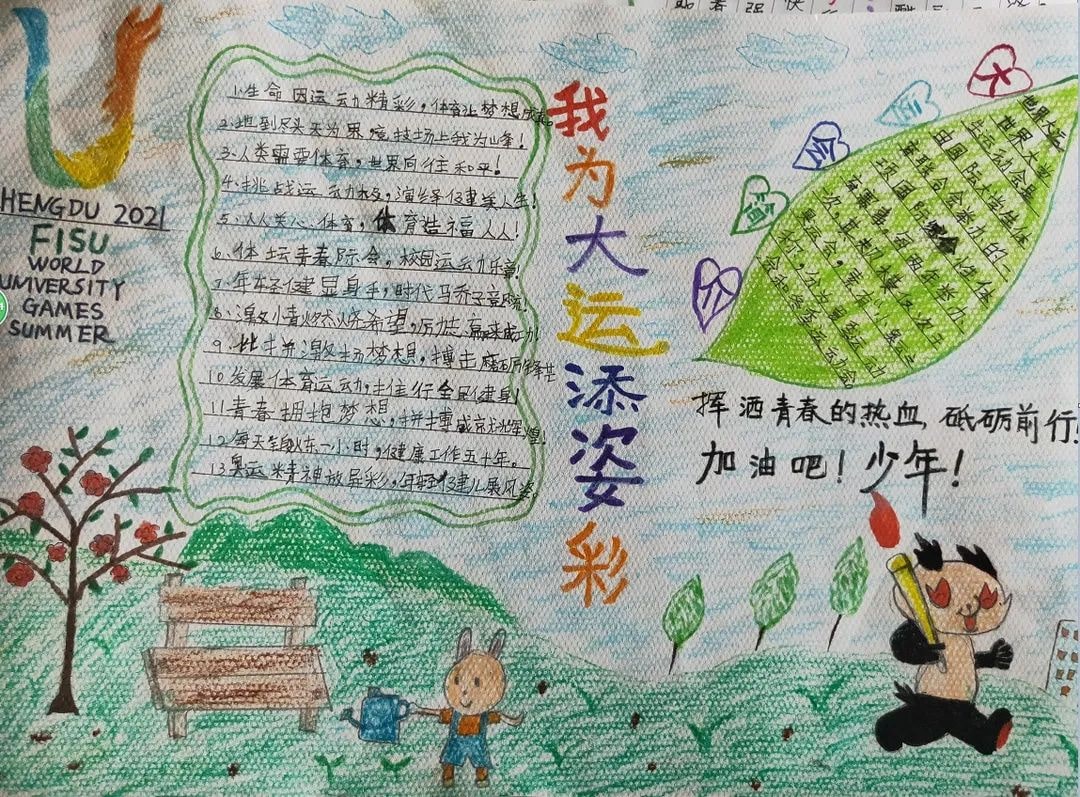 HENGDU 2021
FISU
WORLD
UNIVERSITY
GAMES
SUMMER
1.生命因运动精彩，体育让梦想成真。
2.地到尽头天为界，竞技场上我为峰！
3.人类需要体育，世界向往和平！
4.挑战运动极，演绎健美人生！
5.人人关心体育，体育造福人人！
6.体坛青春际会，校园运动乐章！
7.年轻健显身手，时代马乔子竞风流！
8.激情燃烧希望，历赢来成功
9.拼激扬梦想，搏击磨砺锋芒
10发展体育运动，推行全民健身！
11.青春拥抱梦想，拼搏成就辉煌！
12.每天锻炼一小时，健康工作五十年。
13.奥运精神放异彩，年轻健儿展风姿
我为大运添姿彩
大运会简介
世界大运
世界大学
生运动会是
由国际大学生体
育联合会举办的
育赛事，每两年举办
次，其规模仅次于
奥运会，素有小奥运
之称，分为夏季运动
会和冬季运动会
挥洒青春的热血，砥砺前行！
加油吧！少年！